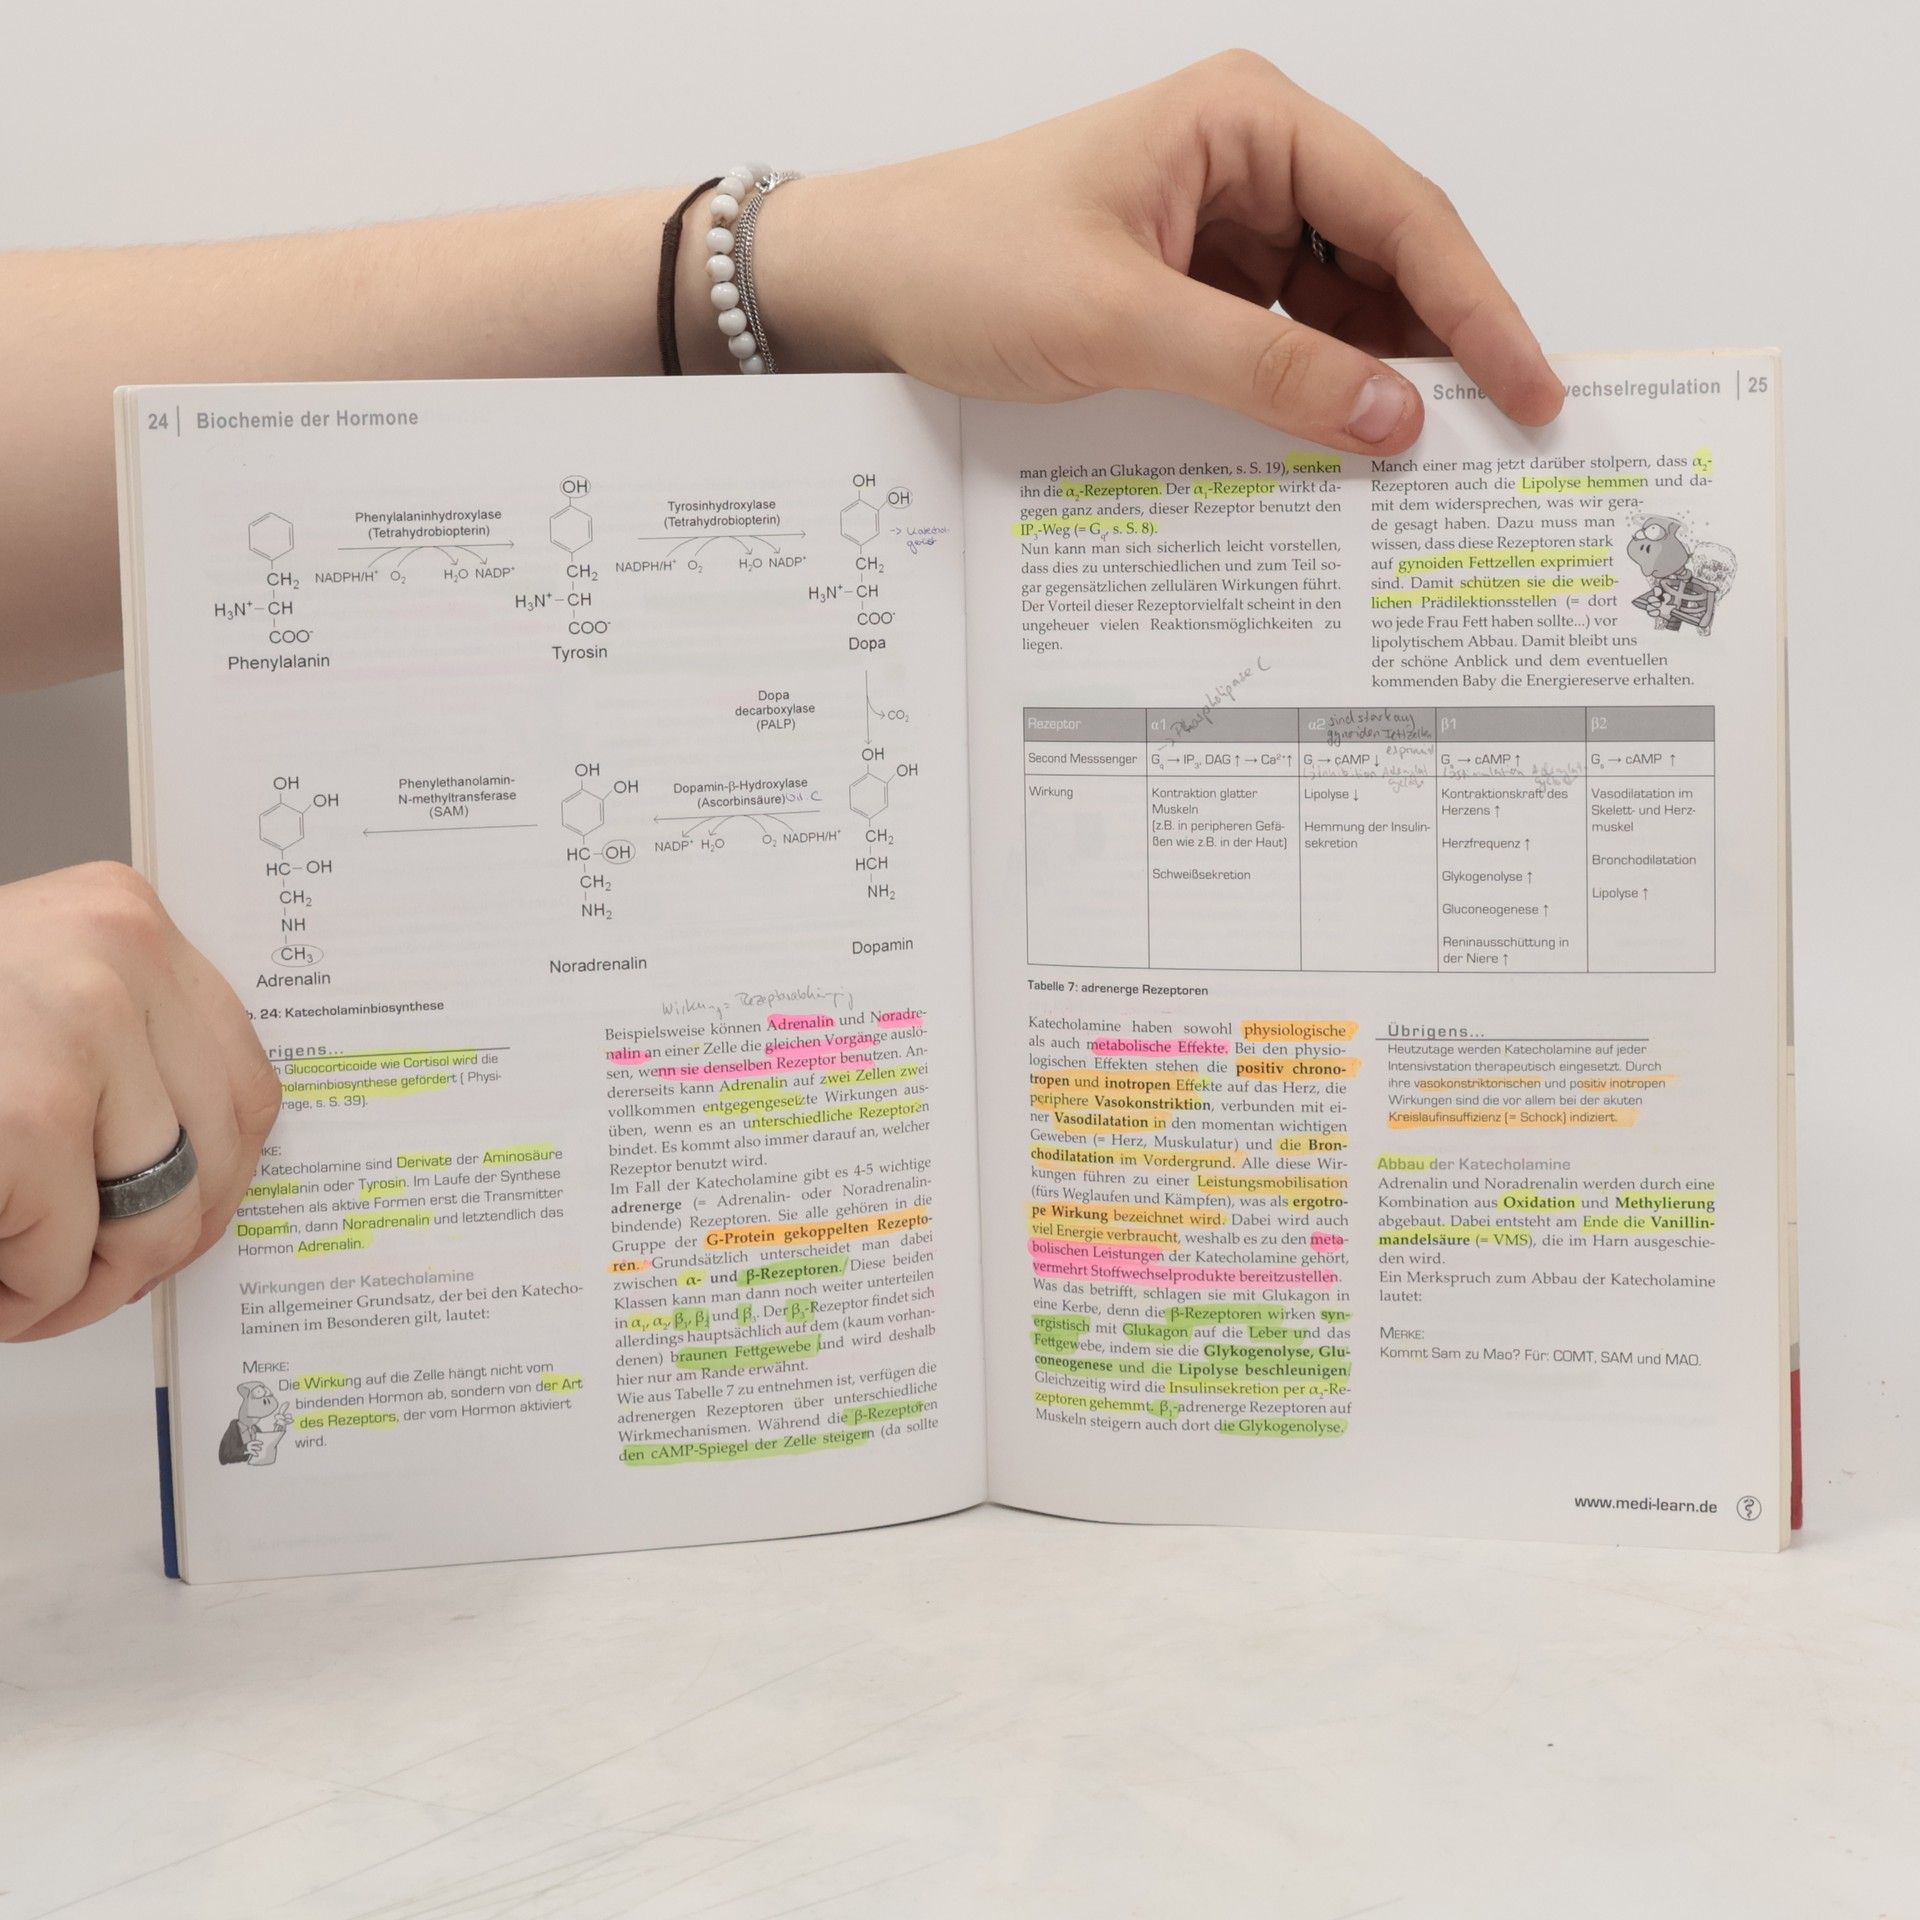 24 | Biochemie der Hormone
OH
OH
OH
Phenylalaninhydroxylase
(Tetrahydrobiopterin)
Tyrosinhydroxylase
(Tetrahydrobiopterin)
NADPH/H⁺ O₂ H₂O NADP⁺
NADPH/H⁺ O₂ H₂O NADP⁺
CH₂
H₃N⁺–CH
COO⁻
Phenylalanin
CH₂
H₃N⁺–CH
COO⁻
Tyrosin
CH₂
H₃N⁺–CH
COO⁻
Dopa
Dopa
decarboxylase
(PALP)
CO₂
OH
OH
CH₂
HCH
NH₂
Dopamin
Dopamin-β-Hydroxylase
(Ascorbinsäure)
NADP⁺ H₂O O₂ NADPH/H⁺
OH
OH
HC–OH
CH₂
NH₂
Noradrenalin
Phenylethanolamin-
N-methyltransferase
(SAM)
OH
OH
HC–OH
CH₂
NH
CH₃
Adrenalin
24: Katecholaminbiosynthese
rigens...
Glucocorticoide wie Cortisol wird die
holaminbiosynthese gefördert ( Physi-
rage, s. S. 39).
KE:
Katecholamine sind Derivate der Aminosäure
henylalanin oder Tyrosin. Im Laufe der Synthese
entstehen als aktive Formen erst die Transmitter
Dopamin, dann Noradrenalin und letztendlich das
Hormon Adrenalin.
Wirkungen der Katecholamine
Ein allgemeiner Grundsatz, der bei den Katecho-
laminen im Besonderen gilt, lautet:
MERKE:
Die Wirkung auf die Zelle hängt nicht vom
bindenden Hormon ab, sondern von der Art
des Rezeptors, der vom Hormon aktiviert
wird.
Wirkung = Rezeptorabhängig
Beispielsweise können Adrenalin und Noradre-
nalin an einer Zelle die gleichen Vorgänge auslö-
sen, wenn sie denselben Rezeptor benutzen. An-
dererseits kann Adrenalin auf zwei Zellen zwei
vollkommen entgegengesetzte Wirkungen aus-
üben, wenn es an unterschiedliche Rezeptoren
bindet. Es kommt also immer darauf an, welcher
Rezeptor benutzt wird.
Im Fall der Katecholamine gibt es 4-5 wichtige
adrenerge (= Adrenalin- oder Noradrenalin-
bindende) Rezeptoren. Sie alle gehören in die
Gruppe der G-Protein gekoppelten Rezepto-
ren. Grundsätzlich unterscheidet man dabei
zwischen α- und β-Rezeptoren. Diese beiden
Klassen kann man dann noch weiter unterteilen
in α₁, α₂, β₁, β₂ und β₃. Der β₃-Rezeptor findet sich
allerdings hauptsächlich auf dem (kaum vorhan-
denen) braunen Fettgewebe und wird deshalb
hier nur am Rande erwähnt.
Wie aus Tabelle 7 zu entnehmen ist, verfügen die
adrenergen Rezeptoren über unterschiedliche
Wirkmechanismen. Während die β-Rezeptoren
den cAMP-Spiegel der Zelle steigern (da sollte
Schne wechselregulation | 25
man gleich an Glukagon denken, s. S. 19), senken
ihn die α₂-Rezeptoren. Der α₁-Rezeptor wirkt da-
gegen ganz anders, dieser Rezeptor benutzt den
IP₃-Weg (= Gq, s. S. 8).
Nun kann man sich sicherlich leicht vorstellen,
dass dies zu unterschiedlichen und zum Teil so-
gar gegensätzlichen zellulären Wirkungen führt.
Der Vorteil dieser Rezeptorvielfalt scheint in den
ungeheuer vielen Reaktionsmöglichkeiten zu
liegen.
Manch einer mag jetzt darüber stolpern, dass α₂-
Rezeptoren auch die Lipolyse hemmen und da-
mit dem widersprechen, was wir gera-
de gesagt haben. Dazu muss man
wissen, dass diese Rezeptoren stark
auf gynoiden Fettzellen exprimiert
sind. Damit schützen sie die weib-
lichen Prädilektionsstellen (= dort
wo jede Frau Fett haben sollte...) vor
lipolytischem Abbau. Damit bleibt uns
der schöne Anblick und dem eventuellen
kommenden Baby die Energiereserve erhalten.
-> Phospholipase C
sind stark auf
gynoiden Fettzellen
Rezeptor α1 α2 β1 β2
Second Messsenger Gq → IP₃, DAG ↑ → Ca²⁺↑ Gi → cAMP ↓ Gs → cAMP ↑ Gs → cAMP ↑
Wirkung
Kontraktion glatter
Muskeln
(z.B. in peripheren Gefä-
ßen wie z.B. in der Haut)
Schweißsekretion
Lipolyse ↓
Hemmung der Insulin-
sekretion
Kontraktionskraft des
Herzens ↑
Herzfrequenz ↑
Glykogenolyse ↑
Gluconeogenese ↑
Reninausschüttung in
der Niere ↑
Vasodilatation im
Skelett- und Herz-
muskel
Bronchodilatation
Lipolyse ↑
Tabelle 7: adrenerge Rezeptoren
Katecholamine haben sowohl physiologische
als auch metabolische Effekte. Bei den physio-
logischen Effekten stehen die positiv chrono-
tropen und inotropen Effekte auf das Herz, die
periphere Vasokonstriktion, verbunden mit ei-
ner Vasodilatation in den momentan wichtigen
Geweben (= Herz, Muskulatur) und die Bron-
chodilatation im Vordergrund. Alle diese Wir-
kungen führen zu einer Leistungsmobilisation
(fürs Weglaufen und Kämpfen), was als ergotro-
pe Wirkung bezeichnet wird. Dabei wird auch
viel Energie verbraucht, weshalb es zu den meta-
bolischen Leistungen der Katecholamine gehört,
vermehrt Stoffwechselprodukte bereitzustellen.
Was das betrifft, schlagen sie mit Glukagon in
eine Kerbe, denn die β-Rezeptoren wirken syn-
ergistisch mit Glukagon auf die Leber und das
Fettgewebe, indem sie die Glykogenolyse, Glu-
coneogenese und die Lipolyse beschleunigen.
Gleichzeitig wird die Insulinsekretion per α₂-Re-
zeptoren gehemmt. β₂-adrenerge Rezeptoren auf
Muskeln steigern auch dort die Glykogenolyse.
Übrigens...
Heutzutage werden Katecholamine auf jeder
Intensivstation therapeutisch eingesetzt. Durch
ihre vasokonstriktorischen und positiv inotropen
Wirkungen sind die vor allem bei der akuten
Kreislaufinsuffizienz (= Schock) indiziert.
Abbau der Katecholamine
Adrenalin und Noradrenalin werden durch eine
Kombination aus Oxidation und Methylierung
abgebaut. Dabei entsteht am Ende die Vanillin-
mandelsäure (= VMS), die im Harn ausgeschie-
den wird.
Ein Merkspruch zum Abbau der Katecholamine
lautet:
MERKE:
Kommt Sam zu Mao? Für: COMT, SAM und MAO.
www.medi-learn.de